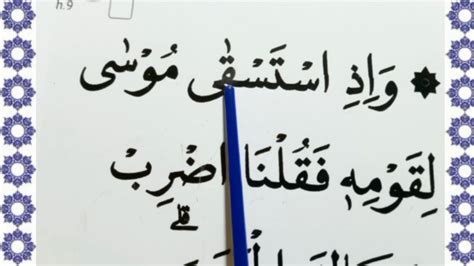 h.9
وَاِذِ اسْتَسْقٰى مُوْسٰى
لِقَوْمِهٖ فَقُلْنَا اضْرِبْ